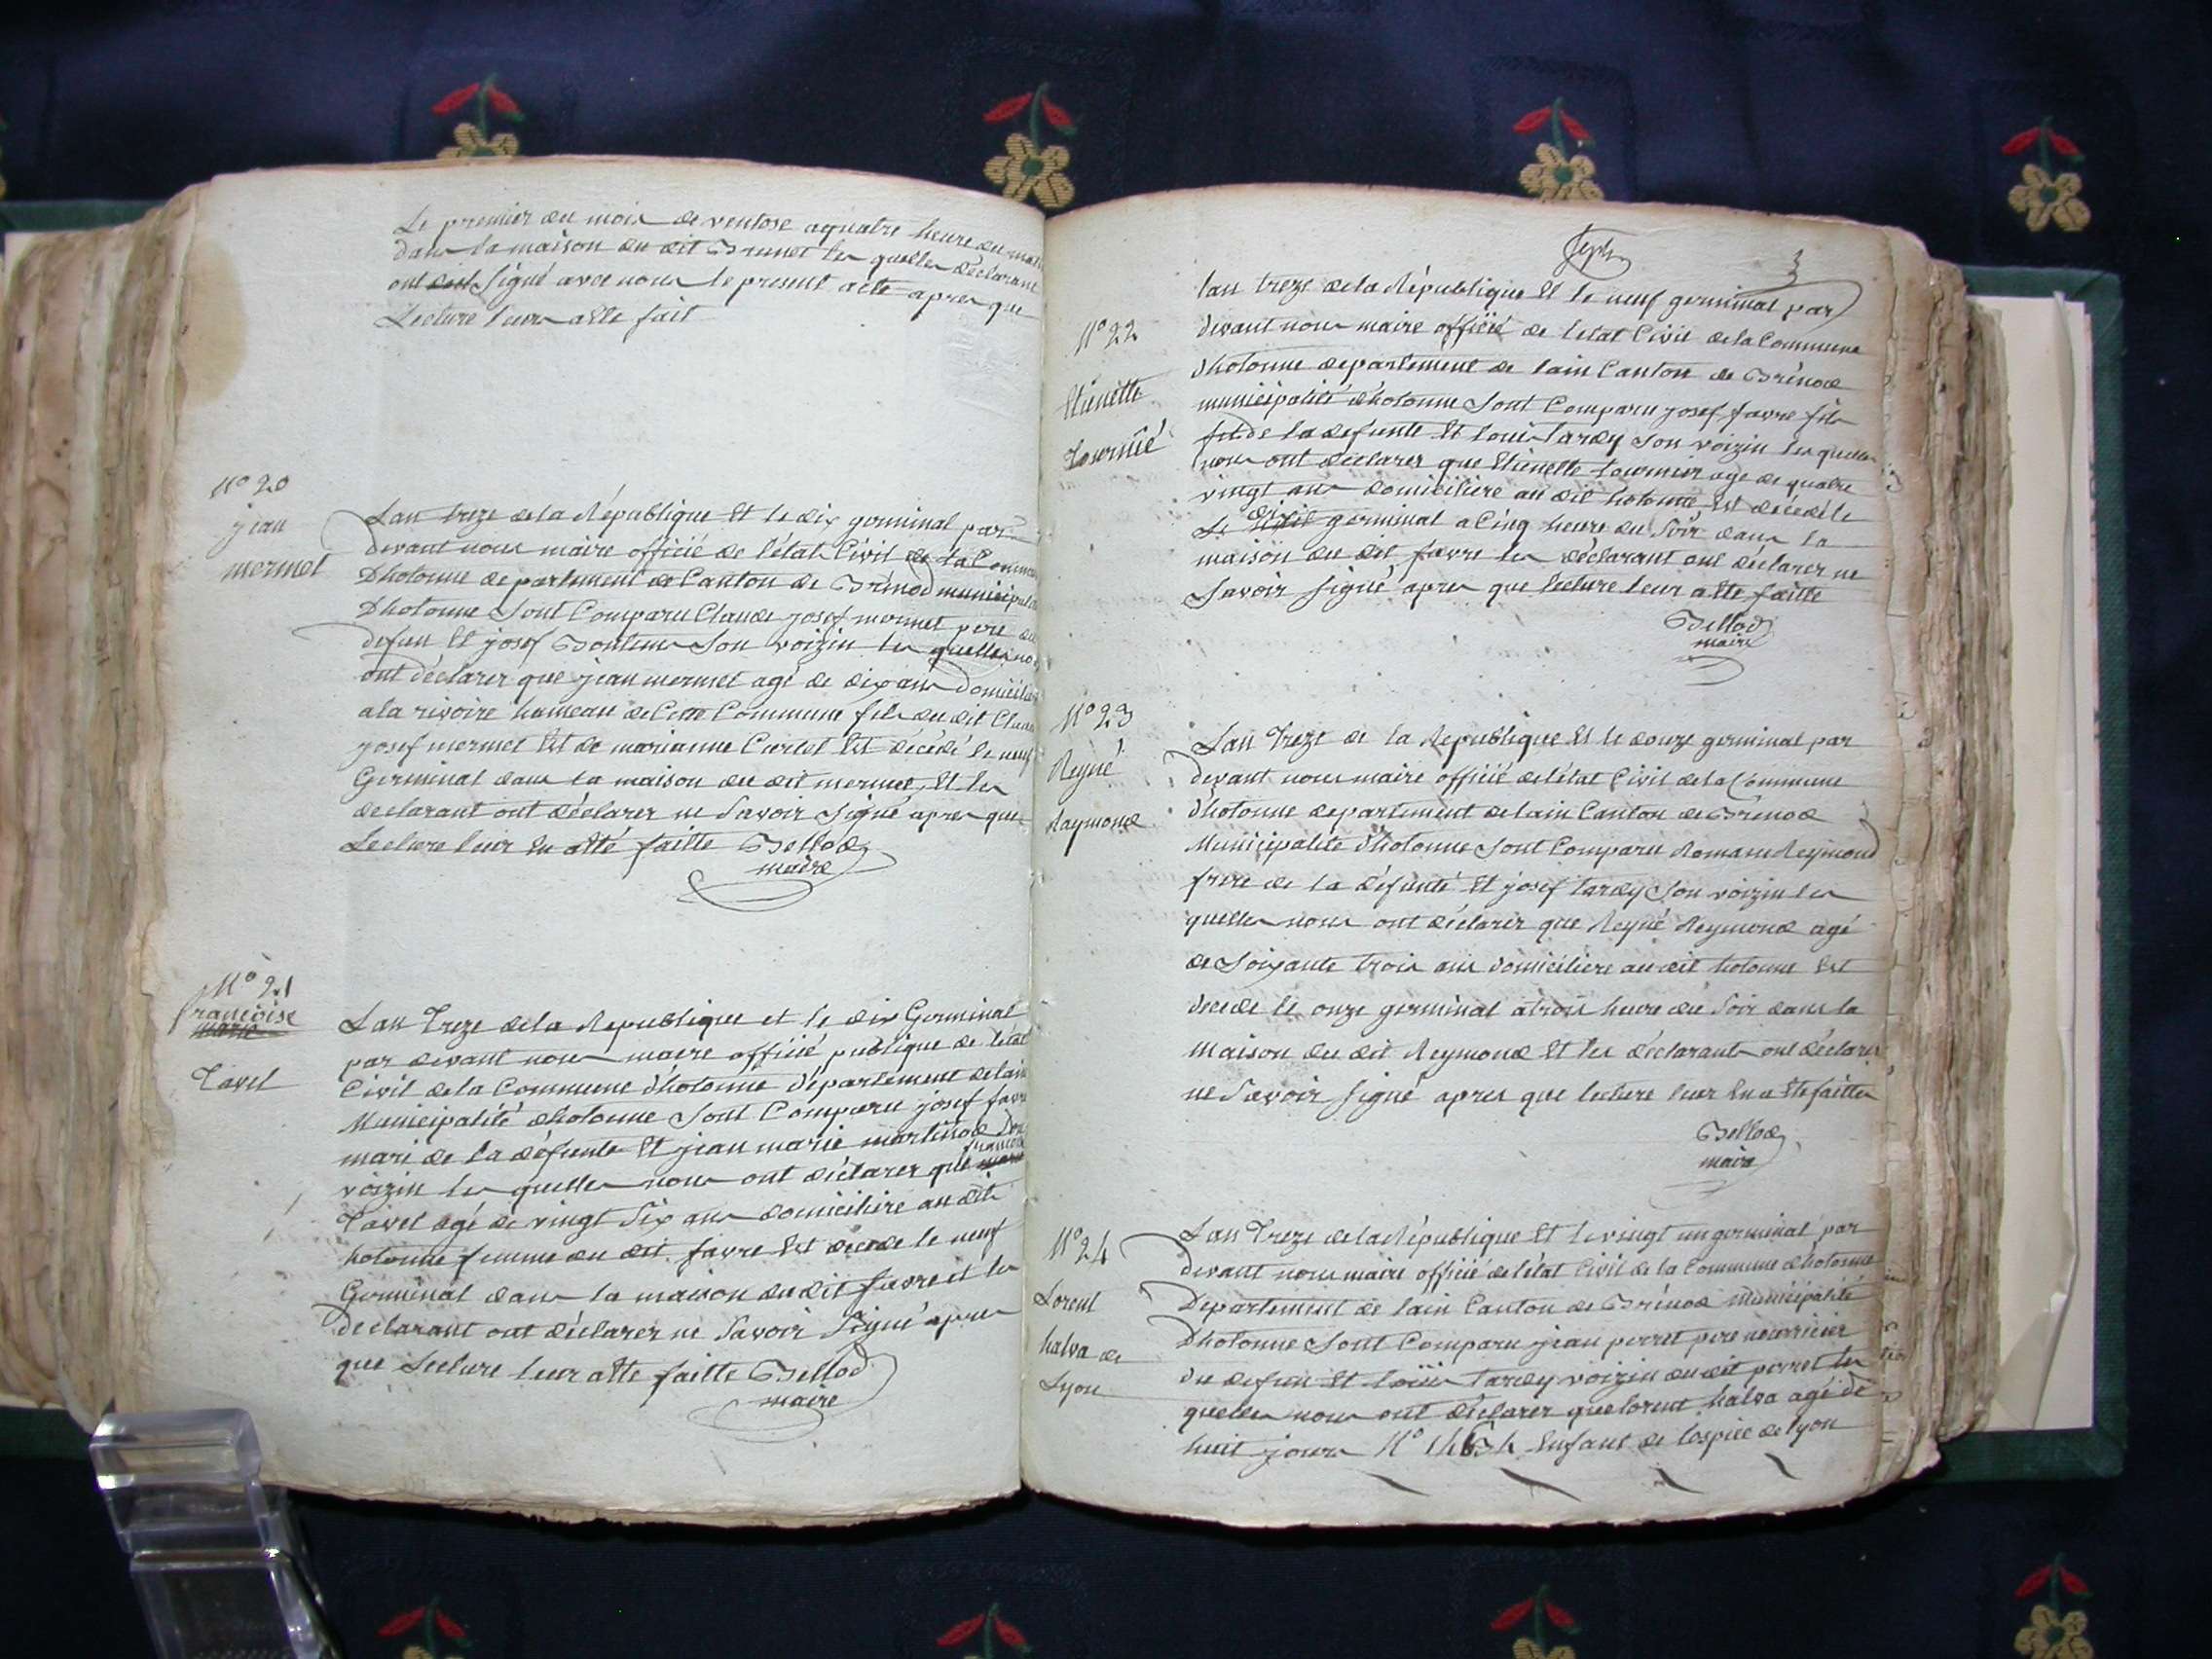 Le premier du mois de ventose aquatre heure du matin
dans la maison du dit Brunet les quelles déclarant
ont signé avec nous le present acte apres que
Lecture leurs atte fait
N° 20
jean
mermet
Lan treze dela République Et le dix germinal par
devant nous maire officié de l'état Civil de la Commune
Dhotonne departement de Canton de Brénod municipalité
Dhotonne Sont Comparu Claude josef mermet pere du
defun Et josef Son voizin les quelles nous
ont déclarer que jean mermet agé de dix ans domicilier
ala rivoire hameau de Cette Commune fils du dit Claude
josef mermet Et de marianne Curlet Est décédé le neuf
Germinal dans la maison du dit mermet, Et les
declarant ont déclarer ne Savoir Signé apres que
Lecture leur En atté faitte Bellod
maire
N° 21
francoise
marie
Tavel
Lan Treze dela Republique et le dix Germinal
par devant nous maire officié publique de l'état
Civil dela Commune d'hotonne département delain
Municipalité dhotonne Sont Comparu josef favre
mari de la défunte Et jean marie martinod Son
voizin les quelles nous ont déclarer que marie francoise
Tavel agé de vingt Six ans domicilière au dit
hotonne femme du dit favre Est decede le neuf
Germinal dans la maison du dit favre et les
declarant ont déclarer ne Savoir Signé apres
que Lecture leur atte faitte Bellod
maire
3
N° 22
Etienette
lan treze dela République Et le neuf germinal par
devant nous maire officié de letat Civil dela Commune
dhotonne departement de lain Canton de Brénod
municipalité d'hotonne Sont Comparu josef favre fils
fils de la defunte Et louis Tardy Son voizin les quelles
nous ont déclarer que Etienette tournier age de quatre
vingt ans domicilière au dit hotonne Est décédé le
Le germinal a Cinq heure du Soir dans la
maison du dit favre les déclarant ont déclarer ne
Savoir Signé apres que lecture leur atte faitte
Bellod
maire
N° 23
Reyné
Raymond
Lan Treze de la Republique Et le douze germinal par
devant nous maire officié de l'état Civil dela Commune
dhotonne departement de lain Canton de Brénod
Municipalité d'hotonne Sont Comparu Romain Reymond
frere de la défunte Et josef tardy Son voizin les
quelles nous ont déclarer que Reyné Reymond agé
de Soixante trois ans domicilière au dit hotonne Est
decede le onze germinal atrois heure du Soir dans la
Maison du dit Reymond Et les déclarants ont déclarer
ne Savoir Signé apres que lecture leur En a Ete faitte
Bellod
maire
N° 24
Lorent
halva de
Lyon
Lan Treze dela République Et le vingt un germinal par
devant nous maire officié de l'état Civil de la Commune dhotonne
Departement de lain Canton de Brénod Municipalité
D'hotonne Sont Comparu jean perret pere nourricier
du defun Et louis Tardy voizin du dit perret les
quelles nous ont déclarer que lorent halva agé de
huit jours N° Enfant de lospice de lyon